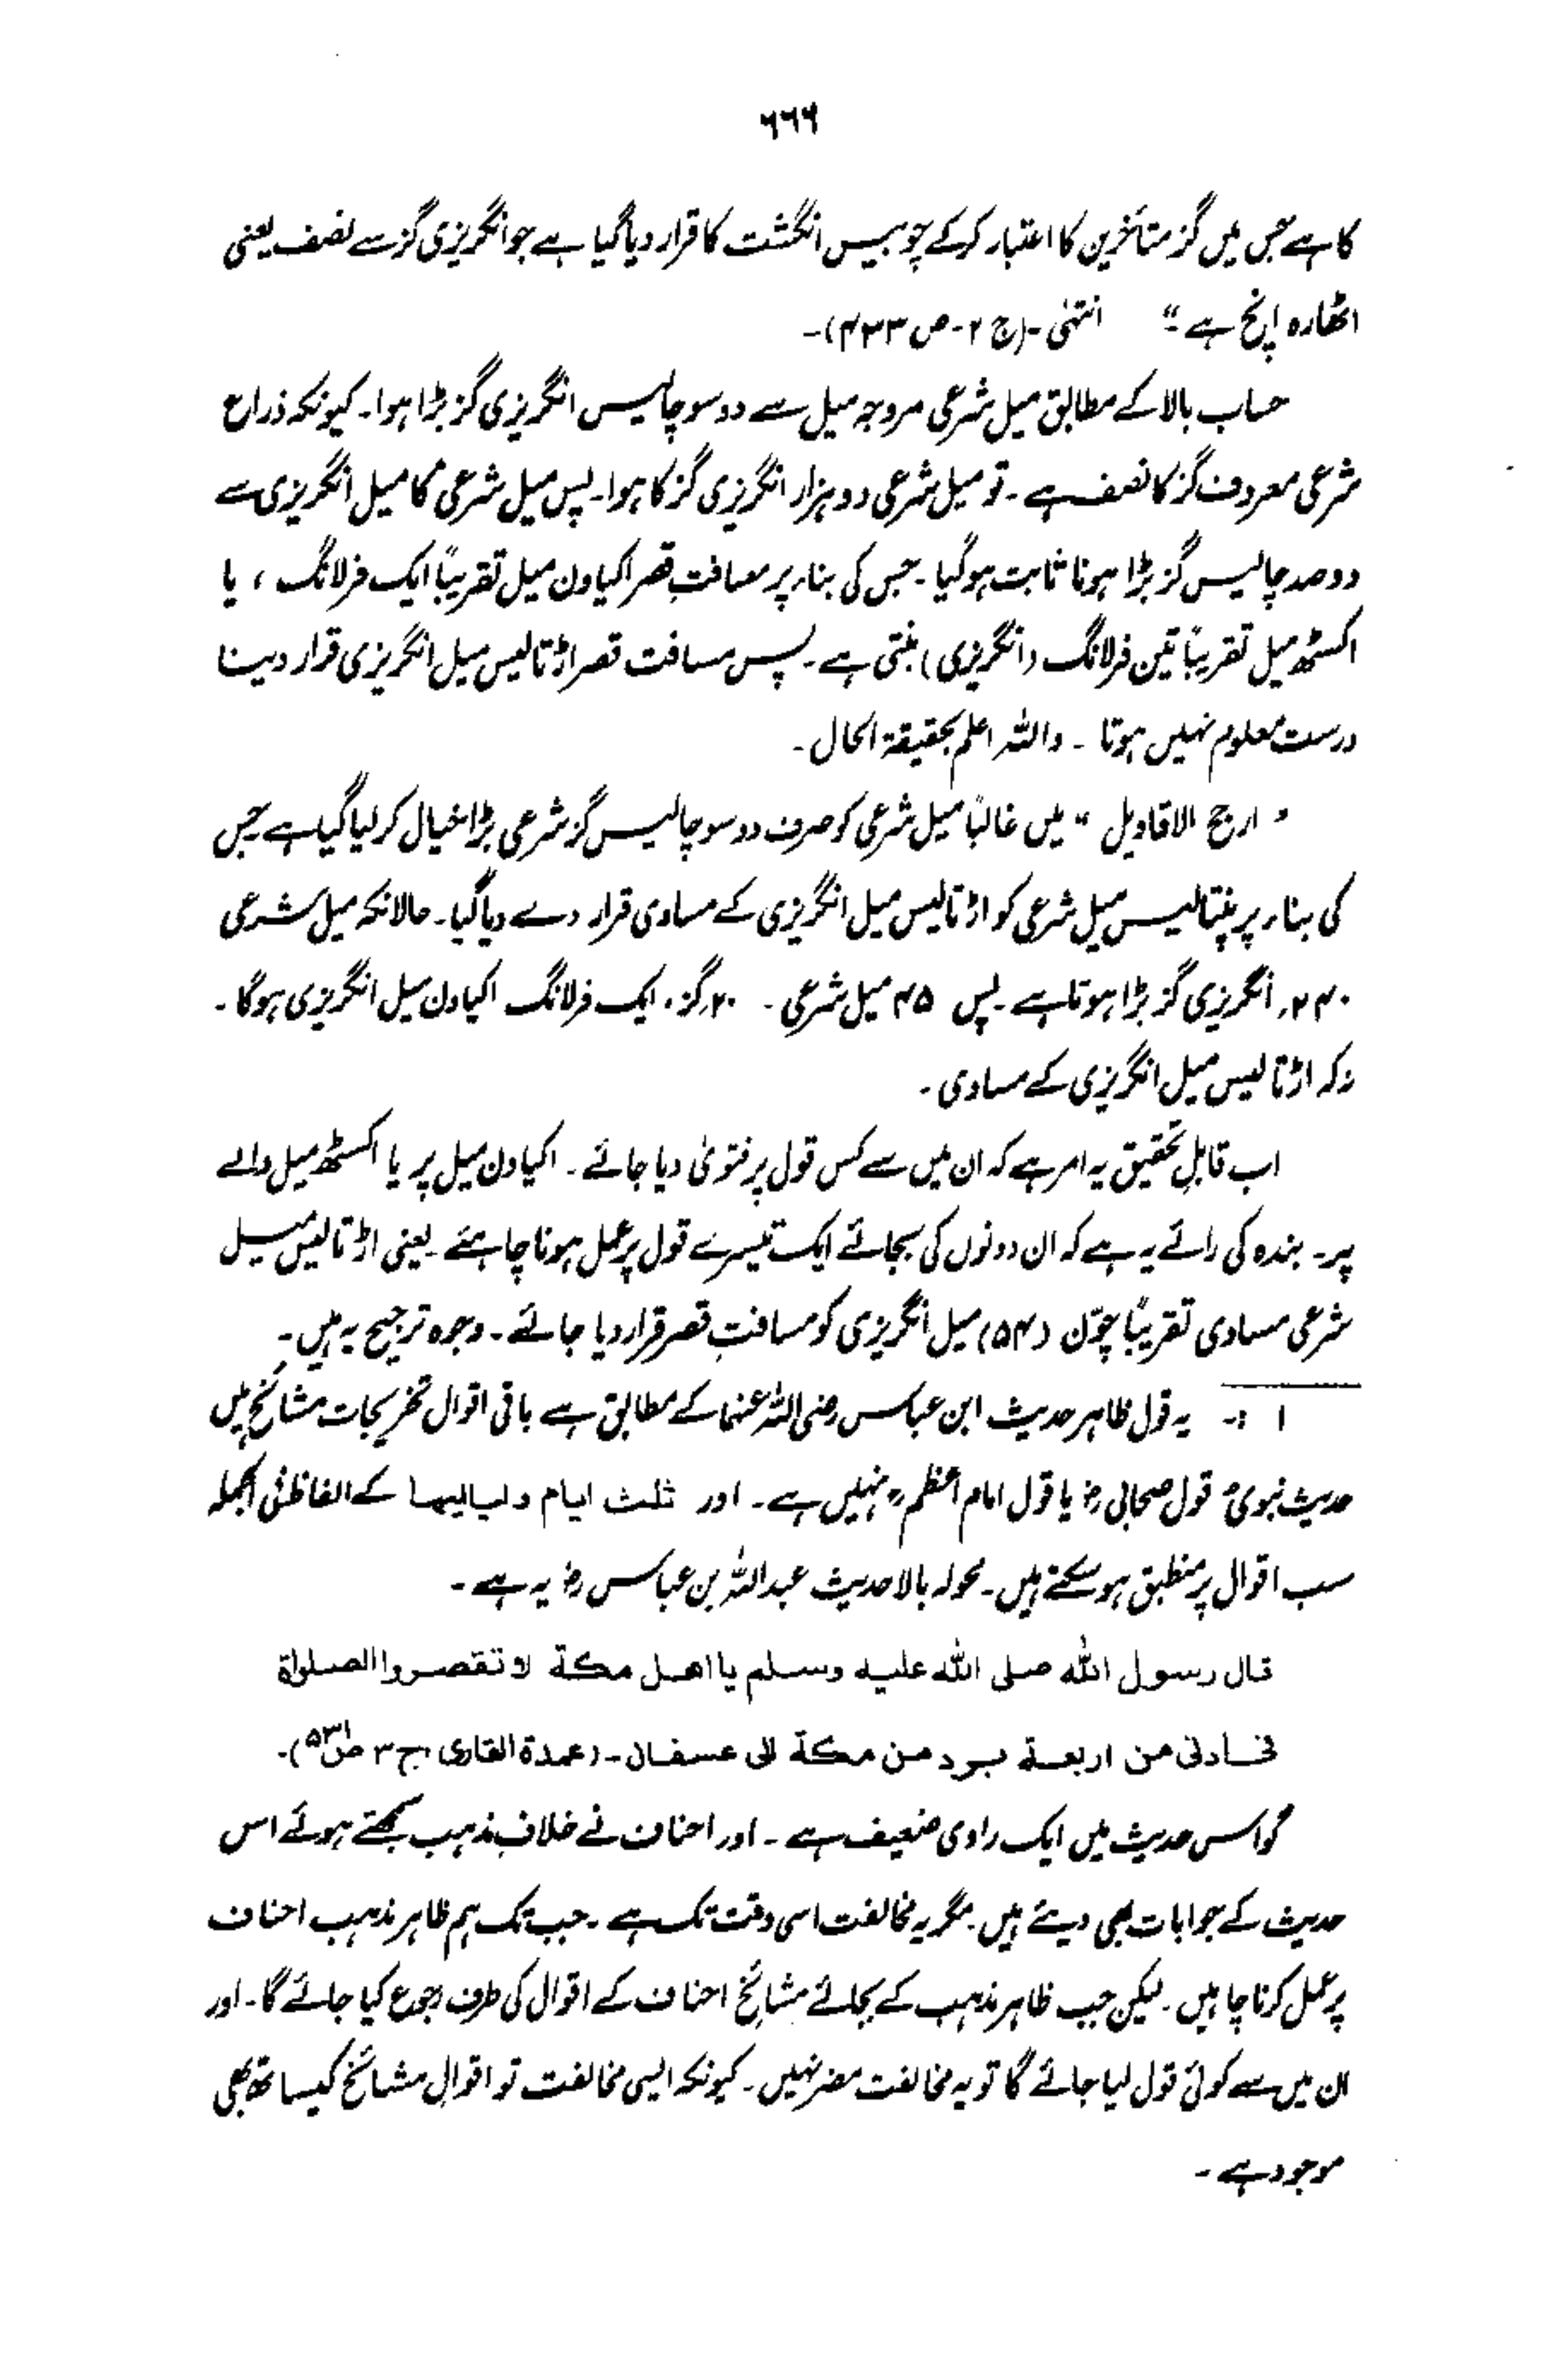 ۶۶۶
کا ہے جس میں گز متأخرین کا اعتبار کرکے چوبیس انگشت کا قرار دیا گیا ہے جو انگریزی گز سے نصف یعنی
اٹھارہ اِنچ ہے “ انتہٰی -(ج ۲- ص ۴۳۳)-
حساب بالا کے مطابق میل شرعی مروجہ میل سے دو سو چالیس انگریزی گز بڑا ہوا۔ کیونکہ ذراع
شرعی معروف گز کا نصف ہے۔ تو میل شرعی دو ہزار انگریزی گز کا ہوا۔ پس میل شرعی کا میل انگریزی سے
دو صد چالیس گز بڑا ہونا ثابت ہوگیا۔ جس کی بناء پر مسافتِ قصر اکیاون میل تقریباً ایک فرلانگ ، یا
اکسٹھ میل تقریباً تین فرلانگ (انگریزی) بنتی ہے۔ پس مسافت قصر اڑتالیس میل انگریزی قرار دینا
درست معلوم نہیں ہوتا ۔ واللہ اعلم بحقیقۃ الحال۔
” ارجح الاقاویل “ میں غالباً میل شرعی کو صرف دو سو چالیس گز شرعی بڑا خیال کر لیا گیا ہے جس
کی بناء پر پنتالیس میل شرعی کو اڑتالیس میل انگریزی کے مساوی قرار دے دیا گیا۔ حالانکہ میل شرعی
۲۴۰، انگریزی گز بڑا ہوتا ہے۔ پس ۴۵ میل شرعی ۔ ۲۰ گز، ایک فرلانگ اکیاون میل انگریزی ہوگا۔
نہ کہ اڑتالیس میل انگریزی کے مساوی۔
اب قابلِ تحقیق یہ امر ہے کہ ان میں سے کس قول پر فتویٰ دیا جائے۔ اکیاون میل پر یا اکسٹھ میل والے
پر۔ بندہ کی رائے یہ ہے کہ ان دونوں کی بجائے ایک تیسرے قول پر عمل ہونا چاہئے۔ یعنی اڑتالیس میل
شرعی مساوی تقریباً چوّن (۵۴) میل انگریزی کو مسافتِ قصر قرار دیا جائے۔ وجوہ ترجیح یہ ہیں۔
۱ :- یہ قول ظاہر حدیث ابن عباس رضی اللہ عنہما کے مطابق ہے باقی اقوال تخریجات مشائخ ہیں
حدیث نبویؐ قول صحابی رضؓ یا قول امام اعظمؒ نہیں ہے۔ اور ثلٰث ایام ولیالیہا کے الفاظ فی الجملہ
سب اقوال پر منطبق ہو سکتے ہیں۔ محولہ بالا حدیث عبد اللہ بن عباس رضؓ یہ ہے۔
قال رسول اللہ صلی اللہ علیہ وسلم یا اھل مکۃ لا تقصروا الصلوٰۃ
فی ادنی من اربعۃ برد من مکۃ الی عسفان۔ (عمدۃ القاری ج ۳ ص ۵۳۱)۔
گو اس حدیث میں ایک راوی ضعیف ہے۔ اور احناف نے خلافِ مذہب سمجھتے ہوئے اس
حدیث کے جوابات بھی دیئے ہیں۔ مگر یہ مخالفت اسی وقت تک ہے۔ جب تک ہم ظاہر مذہب احناف
پر عمل کرنا چاہیں۔ لیکن جب ظاہر مذہب کے بجائے مشائخ احناف کے اقوال کی طرف رجوع کیا جائے گا۔ اور
ان میں سے کوئی قول لیا جائے گا تو یہ مخالفت مضر نہیں۔ کیونکہ ایسی مخالفت تو اقوالِ مشائخ کیساتھ بھی
موجود ہے۔